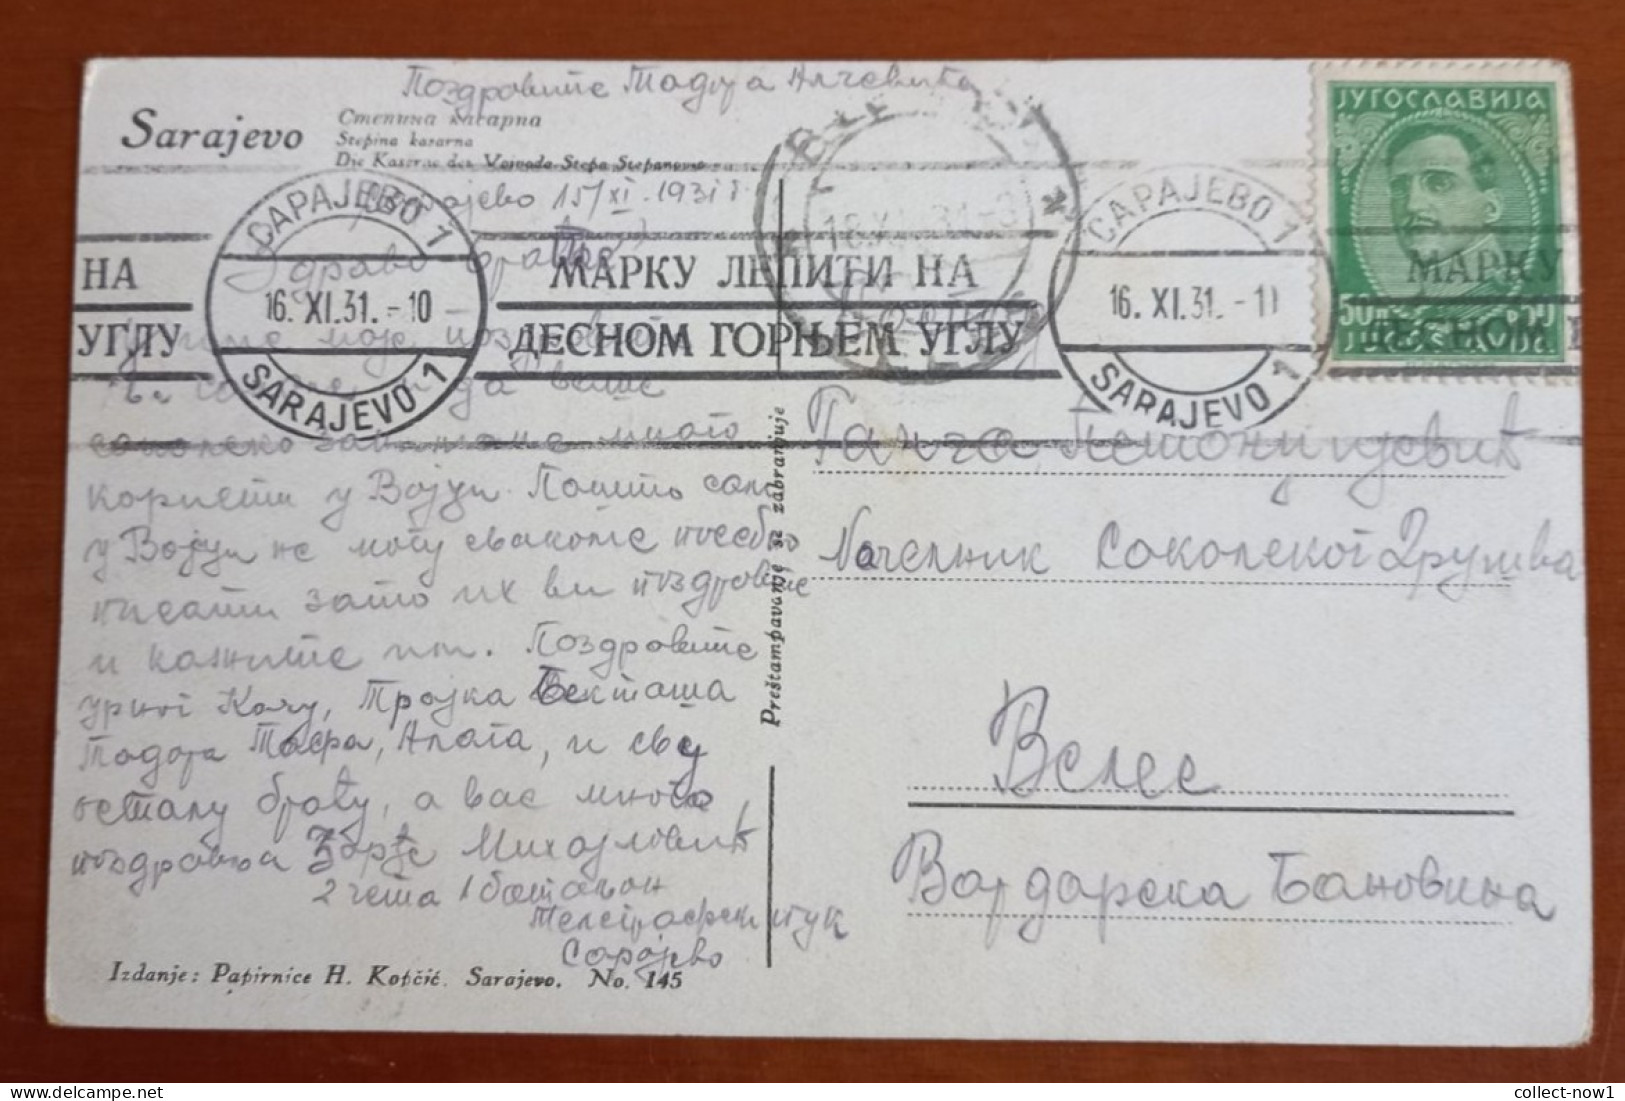 Поздравите Тадора Алчевића
Sarajevo
Степина касарна
Stepina kasarna
Die Kaserne des Vojvoda Stepa Stepanović
Сарајево 15/XI. 1931 г.
Здраво брате
моје
да ваше
соколско много
користи у Војци. Пошто сам
у Војци не могу свакоме посебно
писати зато их ви поздравите
и кажите им. Поздравите
Кочу, Трајка Бекташа
Тадора Алага, и сву
осталу браћу, а вас много
поздравља Ђорђе Михајловић
2 чета 1 батаљон
Телеграфски пук
Сарајево
Izdanje: Papirnice H. Kopčić. Sarajevo. No. 145
Preštampavanje se zabranjuje
ЈУГОСЛАВИЈА
САРАЈЕВО 1
16. XI. 31. - 10
SARAJEVO 1
НА
УГЛУ
МАРКУ ЛЕПИТИ НА
ДЕСНОМ ГОРЊЕМ УГЛУ
18 XI. 31
САРАЈЕВО 1
16. XI. 31. - 1
SARAJEVO 1
МАРКУ
ДЕСНОМ
Ганча
Начелник Соколског Друштва
Велес
Вардарска Бановина
collect-now1